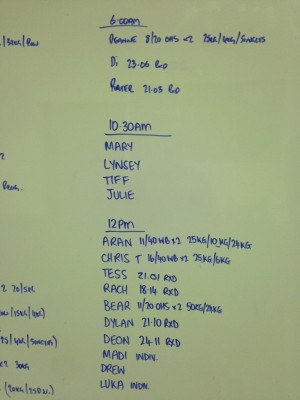 6:00AM
8/20 OHS <2 25KG/4KG/SINGLES
Di 23.06 RxD
21.03 RxD
/32KG/ROW
10.30AM
MARY
LYNSEY
TIFF
JULIE
PROG.
12pm
ARAN 11/40 WB x2 25KG/10KG/24KG
CHRIS T 16/40 WB x2 25KG/6KG
TESS 21.01 RXD
RACH 18.14 RXD
BEAR 11/20 OHS x2 50KG/24KG
DYLAN 21.10 RXD
DEON 24.11 RXD
MADI INDIV.
DREW
LUKA INDIV.
/15KG/
/4KG/SINGLES)
(20KG/250M.)